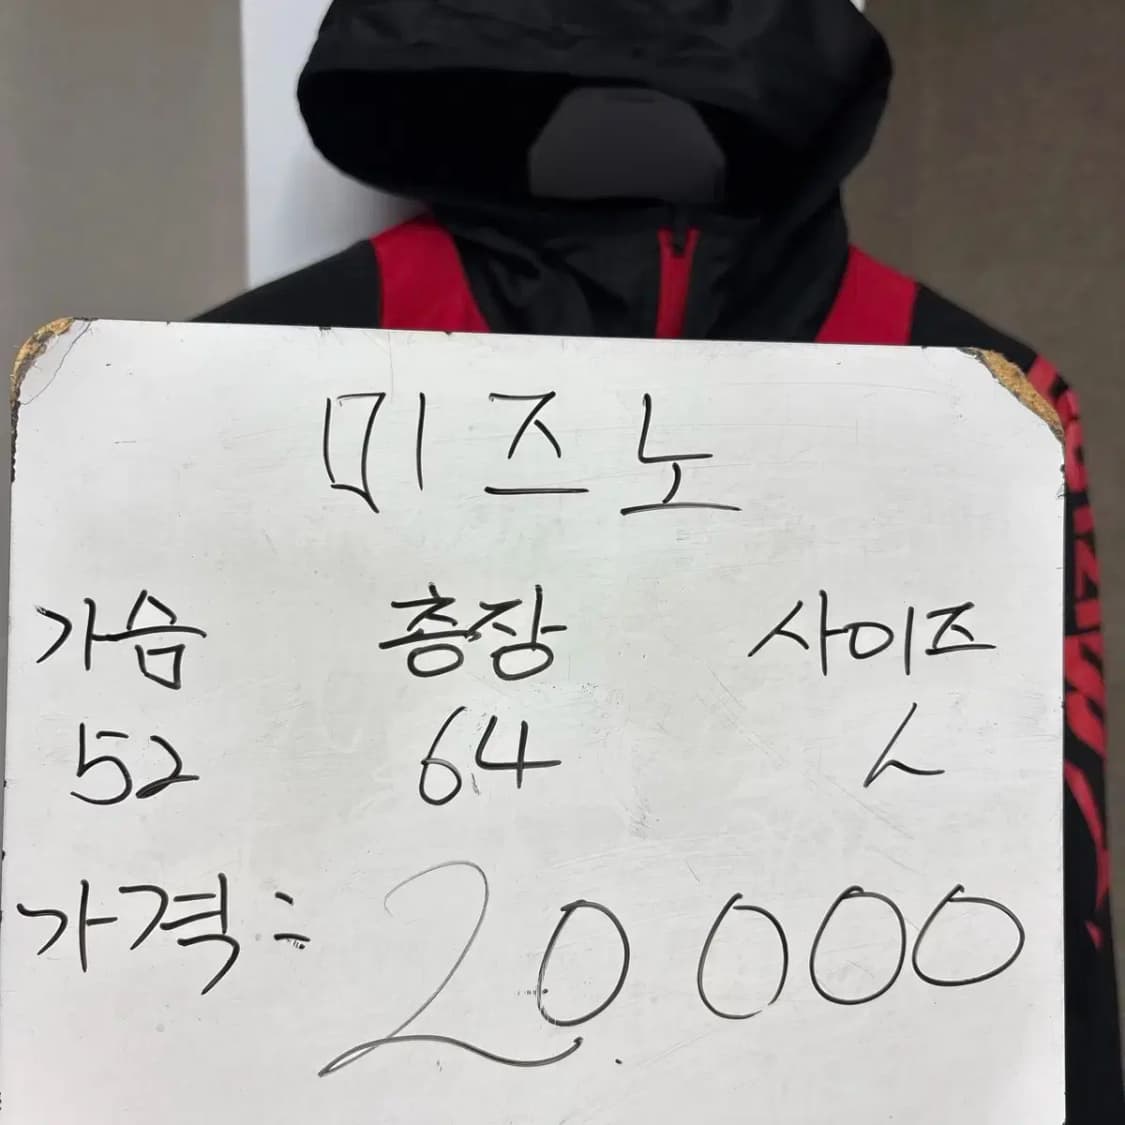 미즈노
가슴 총장 사이즈
52 64 L
가격: 20.000